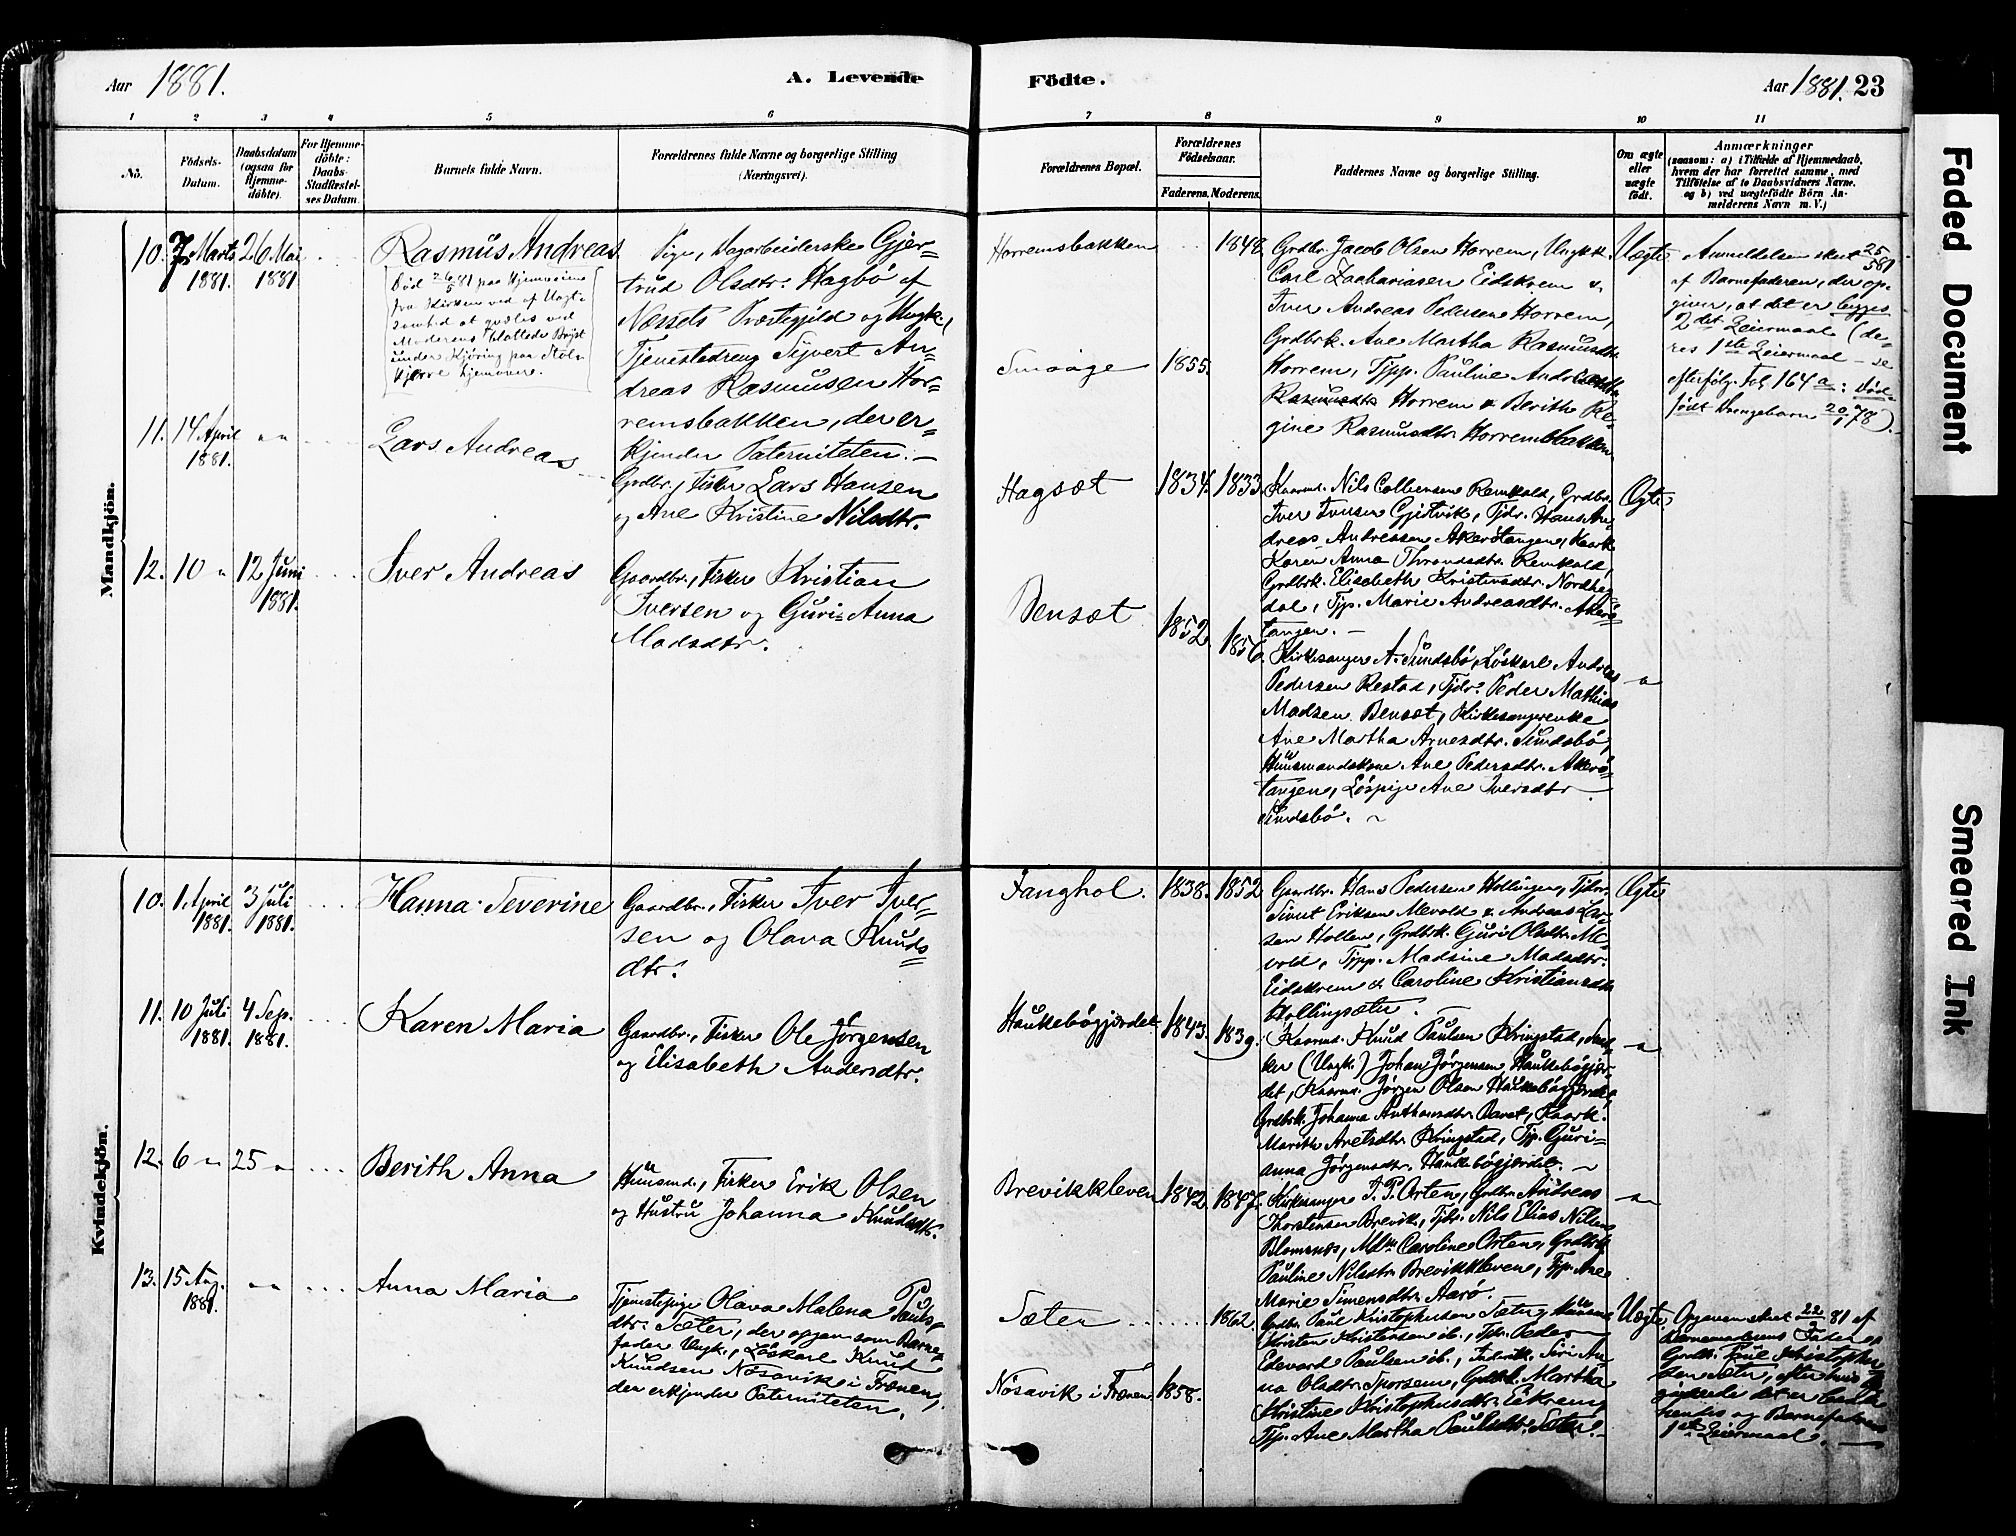 Aar 1881.
A. Levende
Födte.
Aar 1881. 23
1 2 3 4 5 6 7 8 9 10 11
Nö.
Födsels-
Datum.
Daabsdatum
(ogsaa for
Hjemme-
döbte).
For Hjemme-
döbte:
Daabs-
Stadfæstel-
ses Datum.
Barnets fulde Navn.
Forældrenes fulde Navne og borgerlige Stilling
(Næringsvei).
Forældrenes Bopæl.
Forældrenes
Födselsaar.
Faderens. Moderens.
Faddernes Navne og borgerlige Stilling.
Om ægte
eller
uægte
födt.
Anmærkninger
(saasom: a) i Tilfælde af Hjemmedaab,
hvem der har forrettet samme, med
Tilföielse af to Daabsvidners Navne,
og b) ved uægtefödte Börn An-
melderens Navn m. V.)
Mandkjön.
10. 7. Marts 26 Mai
1881. 1881
Rasmus Andreas
Död 26/5 81 paa Hjemveien
fra Kirken ved af Uagt-
somhed at qvæles ved
Moderens blottede Bryst
under Kjöring paa Stöl-
kjærre hjemover.
Pige, Dagarbeiderske Gjer-
trud Olsdtr. Hagbö af
Næssets Præstegjild og Ungk.,
Tjenestedreng Sjvert An-
dreas Rasmusen Hor-
remsbakken, der er-
kjender Paterniteten. —
Horremsbakken
1848
Smaage 1855.
Grdbr. Jacob Olsen Horrem, Ungkk.
Carl Zachariasen Eidskrem &
Iver Andreas Pedersen Horrem,
Grdbrk. Ane Martha Rasmusdtr.
Horrem, Tjpp. Pauline Andreasdtr
Rasmusdtr Horrem & Berith Re-
gine Rasmusdtr. Horremsbakken.
Uægte
Anmeldelsen skeet 25/5 81
af Barnefaderen, der op-
giver, at det er begges
2det Leiermaal (de-
res 1ste Leiermaal – se
efterfølg. Fol 164 a: död-
födt Drengebarn 20/1 78).
11. 14 April " "
1881.
Lars Andreas
Grdbr., Fisker Lars Hansen
og Ane Kristine Nilsdtr.
Hagsæt 1834. 1833.
Kaarmd. Nils Colbensen Remkold, Grdbr.
Iver Iversen Gjetvik, Tjdr. Hans An-
dreas Andreasen Akerötangen, Kaark.
Karen Anna Throndsdtr. Remkold,
Grdbrk. Elisabeth Kristensdtr. Nordhag-
dal, Tjp. Marie Andreasdtr. Akerö-
tangen. —
Ægte
12. 10 " 12 Juni
1881.
Iver Andreas
Gaardbr., Fisker Kristian
Iversen og Guri-Anna
Madsdtr.
Bensæt 1852. 1856.
Kirkesanger A. Sundsbö, Löskarl Andreas
Pedersen Restad, Tjdr. Peder Mathias
Madsen Bensæt, Kirkesangerenke
Ane Martha Arnesdtr. Sundsbö,
Huusmandskone Ane Pedersdtr. Akerö-
tangen, Löspige Ane Iversdtr.
Sundsbö. ~
"
Kvindekjön.
10. 1. April 3 Juli
1881. 1881.
Hanna Severine
Gaardbr., Fisker Iver Iver-
sen og Olava Knuds-
dtr.
Fanghol. 1838. 1852
Gaardbr. Hans Pedersen Hollingen, Tjdrr.
Sivert Eriksen Mevold & Andreas Lar-
sen Hollen, Grdbrk. Guri Olsdtr. Me-
vold, Tjpp. Madsine Madsdtr.
Eidskrem & Caroline Kristiansdtr
Hollingsæter. —
Ægte
11. 10 Juli 4 Sep.
1881. 1881.
Karen Maria
Gaardbr., Fisker Ole Jørgensen
og Elisabeth Andersdtr.
Haukebøgjerdet 1843. 1839.
Kaarmd. Knud Paulsen Kringstad,
ker (Ungk.) Johan Jørgensen Haukebøgjer-
det, Kaarmd. Jørgen Olsen Haukebøgjerdet,
Grdbrk. Johanna Anthonsdtr. , Kaark.
Marith Aretsdtr. Kringstad, Tjp. Guri-
anna Jørgensdtr. Haukebøgjerdet. ~
"
12. 6 " 25 "
Berith Anna
Huusmd., Fisker Erik Olsen
og Hustru Johanna Knudsdtr.
Brevikkleven 1842. 1847.
Kirkesanger J. P. Orten, Grdbr. Andreas
Thorstensen Brevik, Tjdr. Nils Elias Nilsen
Blomsnæs, Mdm. Caroline Orten, Grdbrk.
Pauline Nilsdtr. Brevikkleven, Tjp. Ane
Marie Simensdtr. Aarö.
"
13. 15 Aug. " "
1881.
Anna Maria
Tjenestepige Olava Malena Pauls-
dtr. Sæter, der opgav som Barne-
fader Ungk., Löskarl Knud
Knudsen Nösavik i Frænen,
der erkjender Paterniteten.
Sæter 1862
Nösavik i Frænen. 1858.
Grdbr. Paul Kristophersen Sæter,
Kristen Kristensen ib., Tjdr. Peder
Edevard Paulsen ib., Inderstk. Siri An-
na Olsdtr. , Grdbrk. Martha
Kristine Kristophersdtr. Eikrem,
Tjp. Ane Martha Paulsdtr. Sæter. —
Uægte
Opgaven skeet 22/ 81 af
Barnemoderens Fader
Grdbr. Paul Kristopher-
sen Sæter, efter hvis
givende det er baade
hendes og Barnefaderens
1ste Leiermaal. —
Faded Document
Smeared Ink